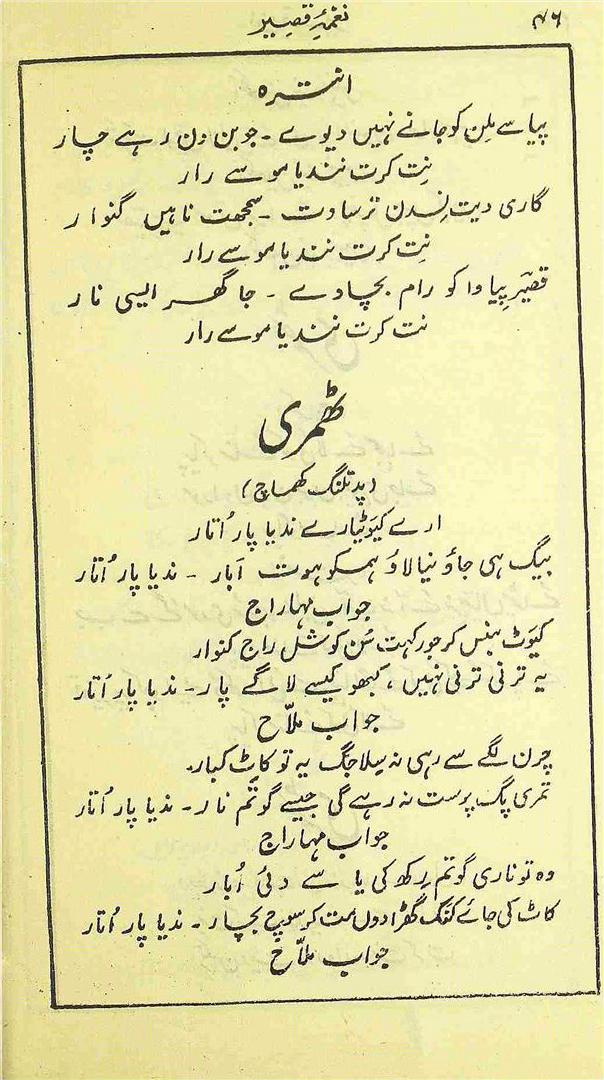 ۴۶
نغمۂ قصیر
انترہ
پیا سے ملن کو جانے نہیں دیوے ۔ جوبن دن رہے چار
نِت کرت نندیا موسے رار
گاری دیت نسدن ترساوت ۔ سمجھت ناہیں گنوار
نِت کرت نندیا موسے رار
قصیر پیاوا کو رام بچاوے ۔ جا گھر ایسی نار
نت کرت نندیا موسے رار
ٹھمری
(پد تلنگ کھماچ)
ارے کیوٹیارے ندیا پار اُتار
بیگ ہی جاؤ نیا لاؤ ہمکو ہوت اَبار ۔ ندیا پار اُتار
جواب مہاراج
کیوَٹ ہنس کر جور کہت، سُن کوشل راج کنوار
یہ ترنی ترنی نہیں، کبھو کیسے لاگے پار ۔ ندیا پار اُتار
جواب ملّاح
چرن لگے سے رہی نہ سِلا جگ یہ تو کاٹ کبار۔
تمری پگ پرست نہ رہے گی جیسے گوتم نار ۔ ندیا پار اُتار
جواب مہاراج
وہ تو ناری گوتم رِکھ کی یا سے دئی اُبار
کاٹ کی جائے کنگ گھڑا دوں مت کر سوچ بچار ۔ ندیا پار اُتار
جواب ملّاح